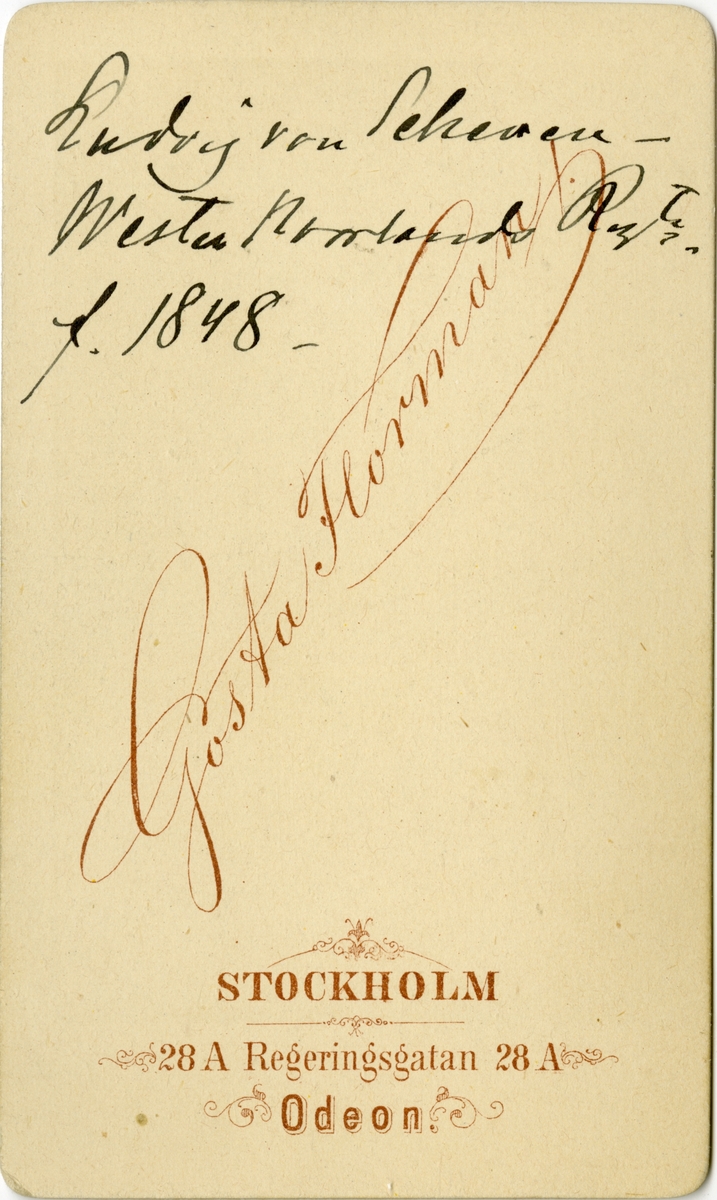 Ludvig von Scheven –
Westernorrlands Regte.
f. 1848 –
Gösta Florman
STOCKHOLM
28 A Regeringsgatan 28 A
Odeon.